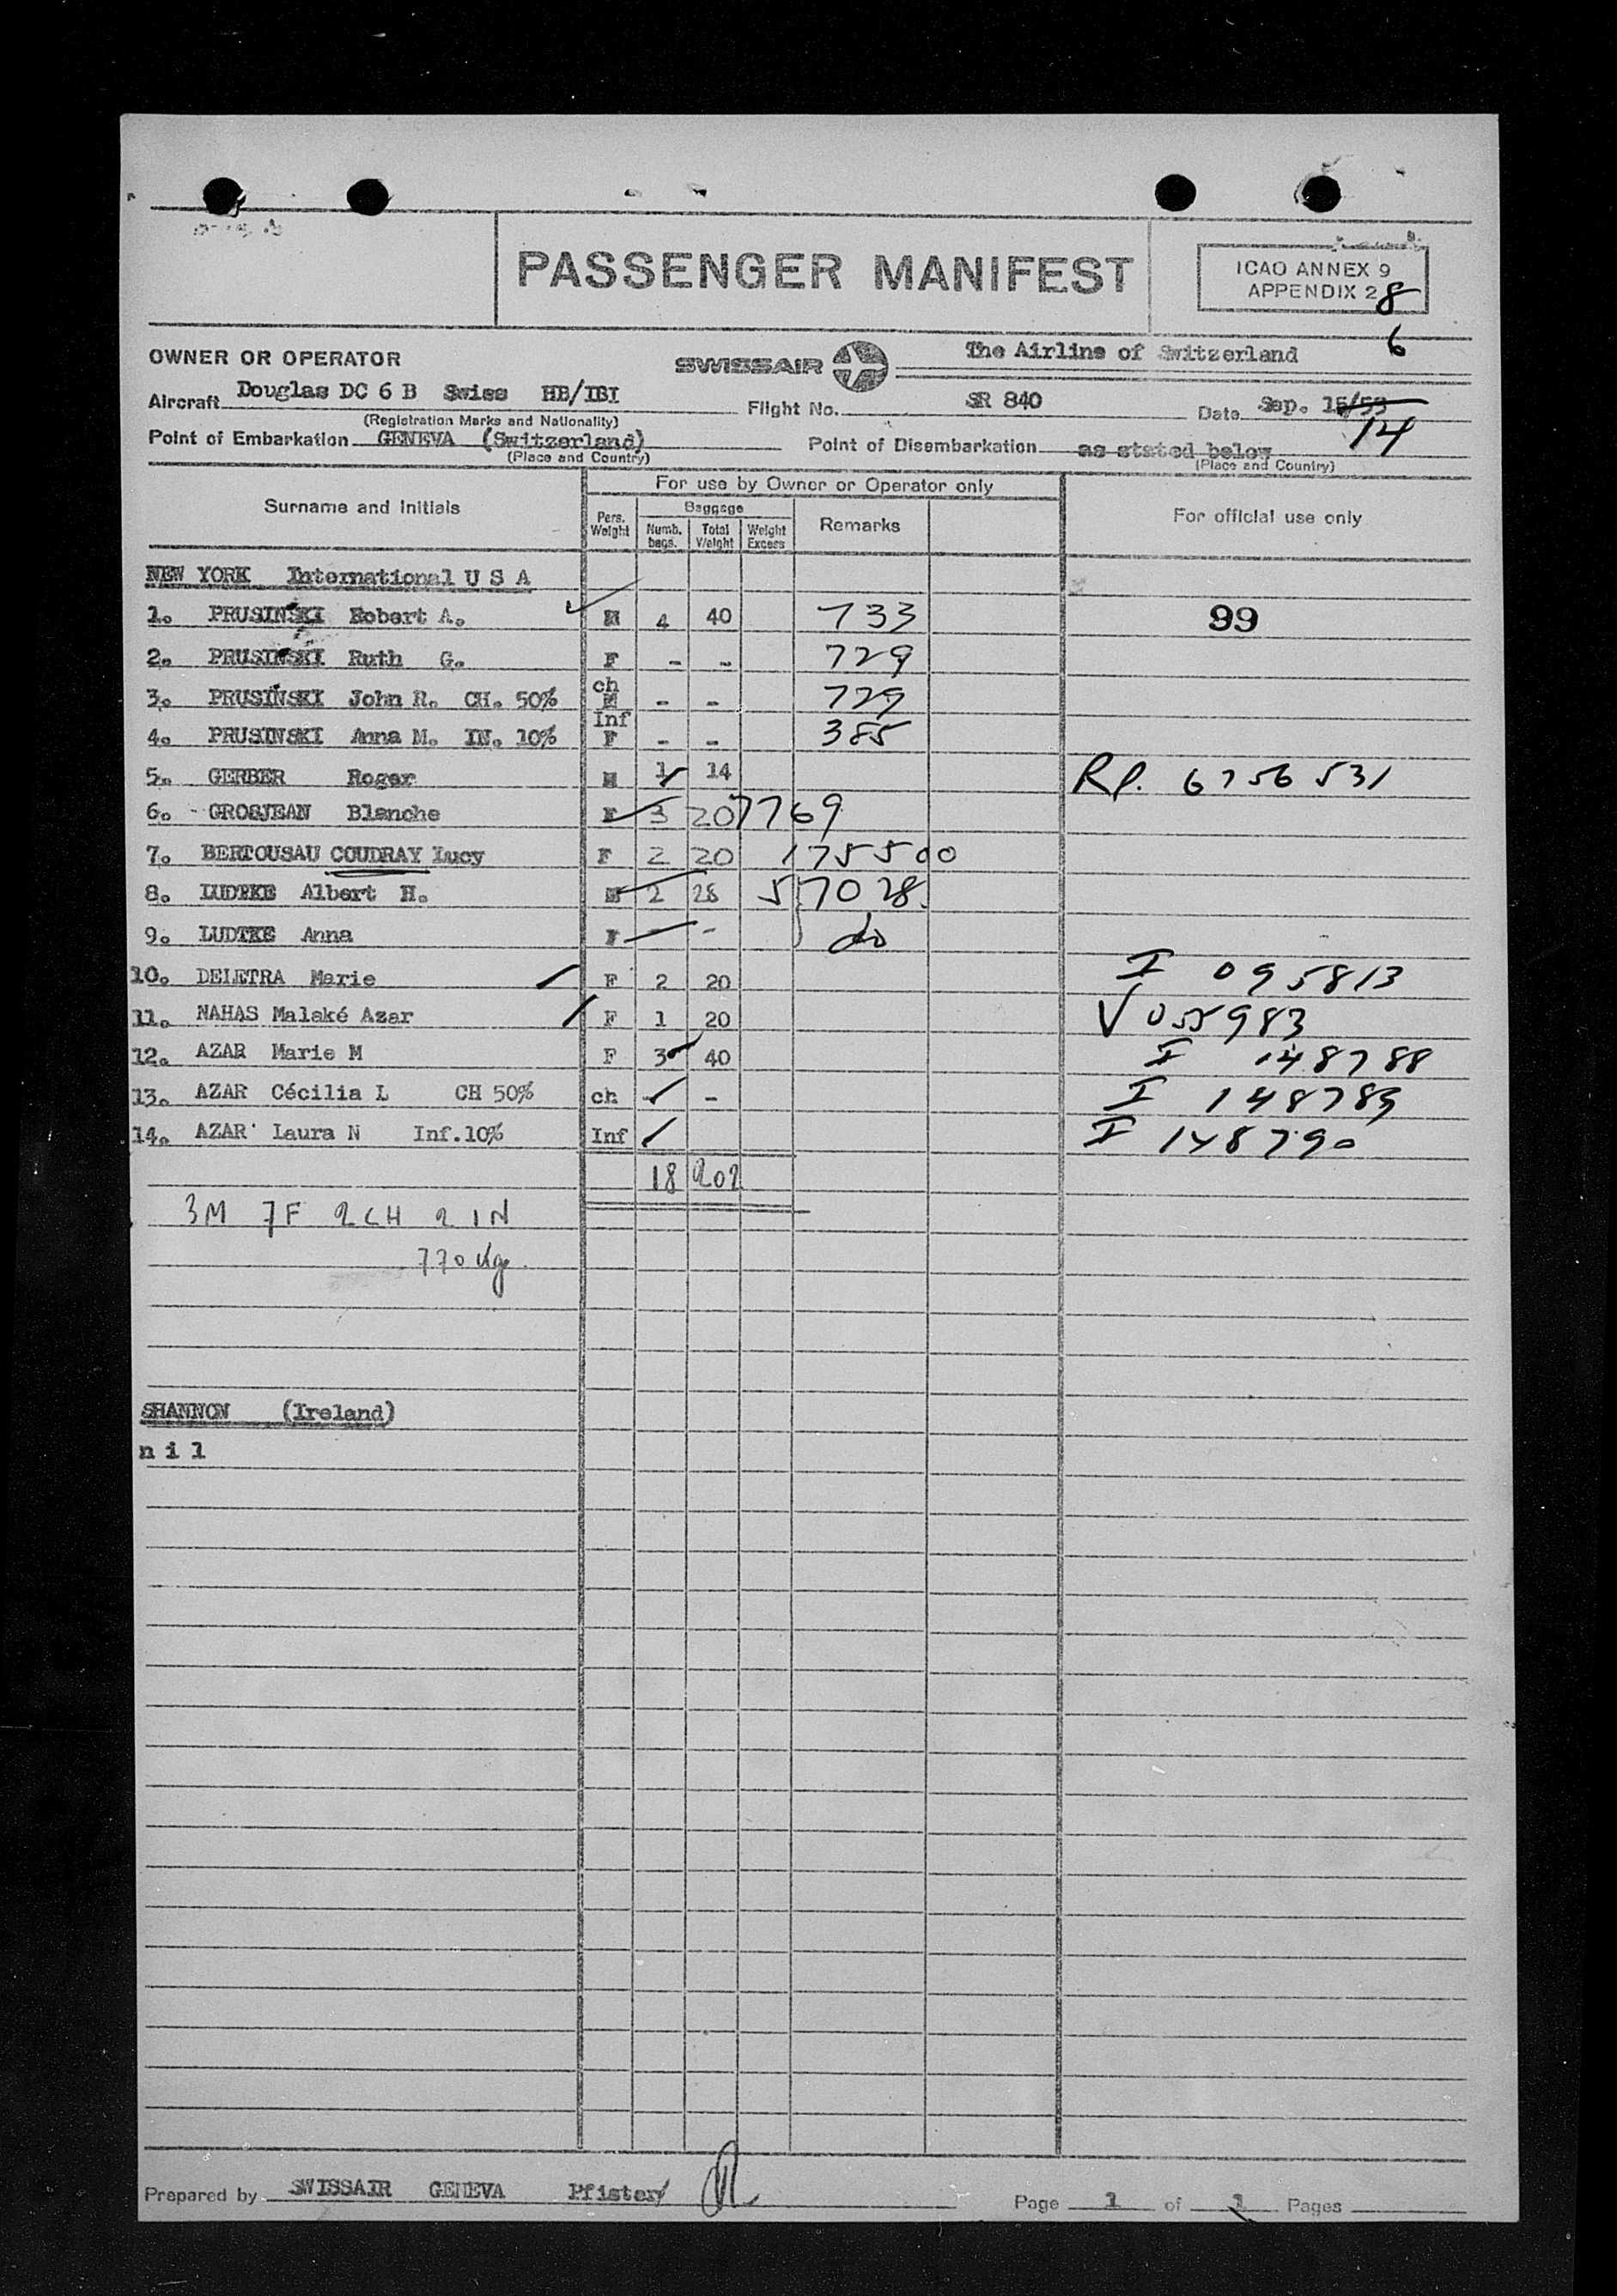 PASSENGER MANIFEST
ICAO ANNEX 9
APPENDIX 2
8
6
OWNER OR OPERATOR SWISSAIR The Airline of Switzerland
Aircraft Douglas DC 6 B Swiss HB/IBI Flight No. SR 840 Date Sep. 15/53
(Registration Marks and Nationality)
14
Point of Embarkation GENEVA (Switzerland) Point of Disembarkation as stated below
(Place and Country) (Place and Country)
Surname and Initials
For use by Owner or Operator only
For official use only
Pers. Weight
Baggage
Numb. bags. Total Weight Weight Excess
Remarks
NEW YORK International U S A
1. PRUSINSKI Robert A. M 4 40 733 99
2. PRUSINSKI Ruth G. F - - 729
3. PRUSINSKI John R. CH. 50% ch M - - 729
4. PRUSINSKI Anna M. IN. 10% Inf F - - 385
5. GERBER Roger M 1 14 Rp. 6756531
6. - GROSJEAN Blanche F 3 20 7769
7. BERTOUSAU COUDRAY Lucy F 2 20 175500
8. LUDTKE Albert H. M 2 28 57028
9. LUDTKE Anna F - - do
10. DELETRA Marie F 2 20 I 095813
11. NAHAS Malaké Azar F 1 20 V 055983
12. AZAR Marie M F 3 40 I 148788
13. AZAR Cécilia L CH 50% ch - - I 148789
14. AZAR Laura N Inf.10% Inf I 148790
18 202
3M 7F 2CH 2IN
770 kg.
SHANNON (Ireland)
n i l
Prepared by SWISSAIR GENEVA Pfister/ Page 1 of 1 Pages